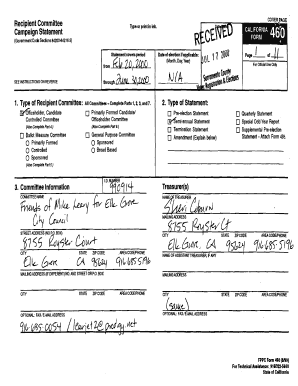 COVER PAGE
Recipient Committee
Campaign Statement
(Government Code Sections 84200-84216.5)
Type or print in ink.
RECEIVED
JUL 17 2000
Sacramento County
Voter Registration & Elections
CALIFORNIA
FORM 460
Page 1 of
For Official Use Only
Statement covers period
from Feb 20, 2000
through June 30, 2000
Date of election if applicable:
(Month, Day, Year)
N/A
SEE INSTRUCTIONS ON REVERSE
1. Type of Recipient Committee: All Committees – Complete Parts 1, 2, 3, and 7.
Officeholder, Candidate
Controlled Committee
(Also Complete Part 4.)
Ballot Measure Committee
Primarily Formed
Controlled
Sponsored
(Also Complete Part 5.)
Primarily Formed Candidate/
Officeholder Committee
(Also Complete Part 6.)
General Purpose Committee
Sponsored
Broad Based
2. Type of Statement:
Pre-election Statement
Semi-annual Statement
Termination Statement
Amendment (Explain below)
Quarterly Statement
Special Odd-Year Report
Supplemental Pre-election
Statement - Attach Form 495
3. Committee Information
I.D. NUMBER
990914
COMMITTEE NAME
Friends of Mike Leary for Elk Grove
City Council
STREET ADDRESS (NO P.O. BOX)
8755 Royster Court
CITY STATE ZIP CODE AREA CODE/PHONE
Elk Grove CA 95624 916.685.5196
MAILING ADDRESS (IF DIFFERENT) NO. AND STREET OR P.O. BOX
CITY STATE ZIP CODE AREA CODE/PHONE
OPTIONAL: FAX / E-MAIL ADDRESS
916.685.0054
Treasurer(s)
NAME OF TREASURER
MAILING ADDRESS
8755 Royster Ct
CITY STATE ZIP CODE AREA CODE/PHONE
Elk Grove, CA 95624 916.685.5196
NAME OF ASSISTANT TREASURER, IF ANY
MAILING ADDRESS
CITY STATE ZIP CODE AREA CODE/PHONE
(same)
OPTIONAL: FAX / E-MAIL ADDRESS
FPPC Form 460 (8/99)
For Technical Assistance: 916/322-5660
State of California